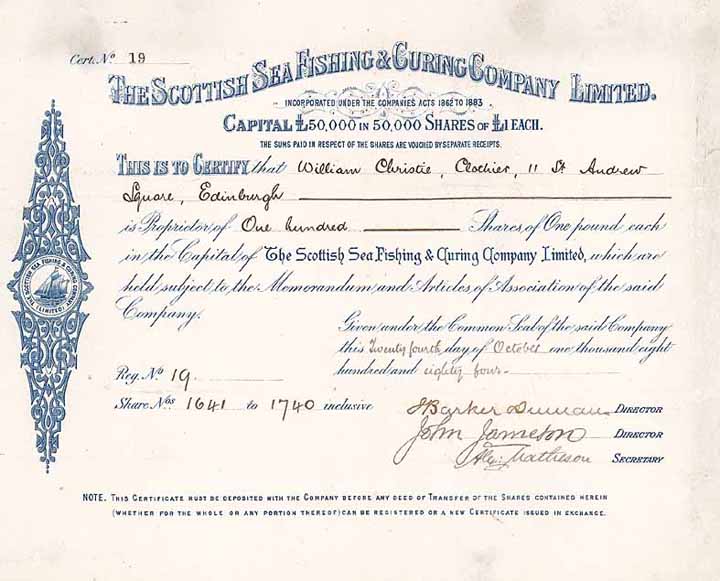 Cert. No 19
THE SCOTTISH SEA FISHING & CURING COMPANY LIMITED.
INCORPORATED UNDER THE COMPANIES ACTS 1862 TO 1883.
CAPITAL £50,000 IN 50,000 SHARES OF £1 EACH.
THE SUMS PAID IN RESPECT OF THE SHARES ARE VOUCHED BY SEPARATE RECEIPTS.
THIS IS TO CERTIFY that William Christie, Clothier, 11 St Andrew
Square, Edinburgh
is Proprietor of One hundred Shares of One pound each
in the Capital of The Scottish Sea Fishing & Curing Company Limited, which are
held subject to the Memorandum and Articles of Association of the said
Company.
THE SCOTTISH SEA FISHING & CURING COMPANY (LIMITED)
Given under the Common Seal of the said Company
this Twenty fourth day of October one thousand eight
hundred and eighty four
Reg. No 19.
Share Nos 1641 to 1740 inclusive
J Barker Duncan DIRECTOR
John Jameson DIRECTOR
Alex: Matheson SECRETARY
NOTE. THIS CERTIFICATE MUST BE DEPOSITED WITH THE COMPANY BEFORE ANY DEED OF TRANSFER OF THE SHARES CONTAINED HEREIN
(WHETHER FOR THE WHOLE OR ANY PORTION THEREOF) CAN BE REGISTERED OR A NEW CERTIFICATE ISSUED IN EXCHANGE.